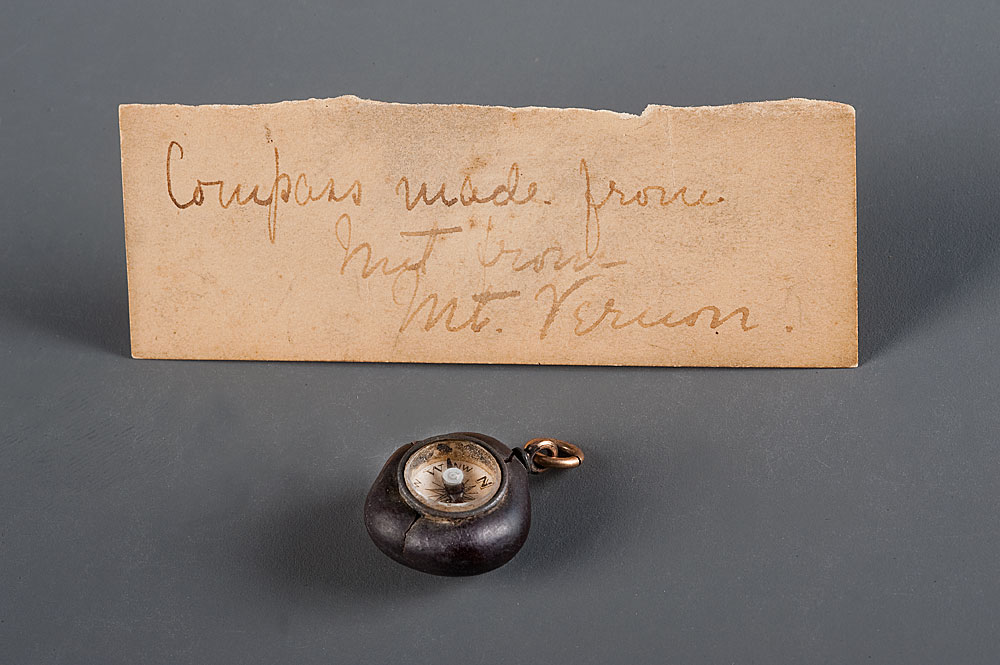 Compass made from
Nut from
Mt. Vernon.
W NW N